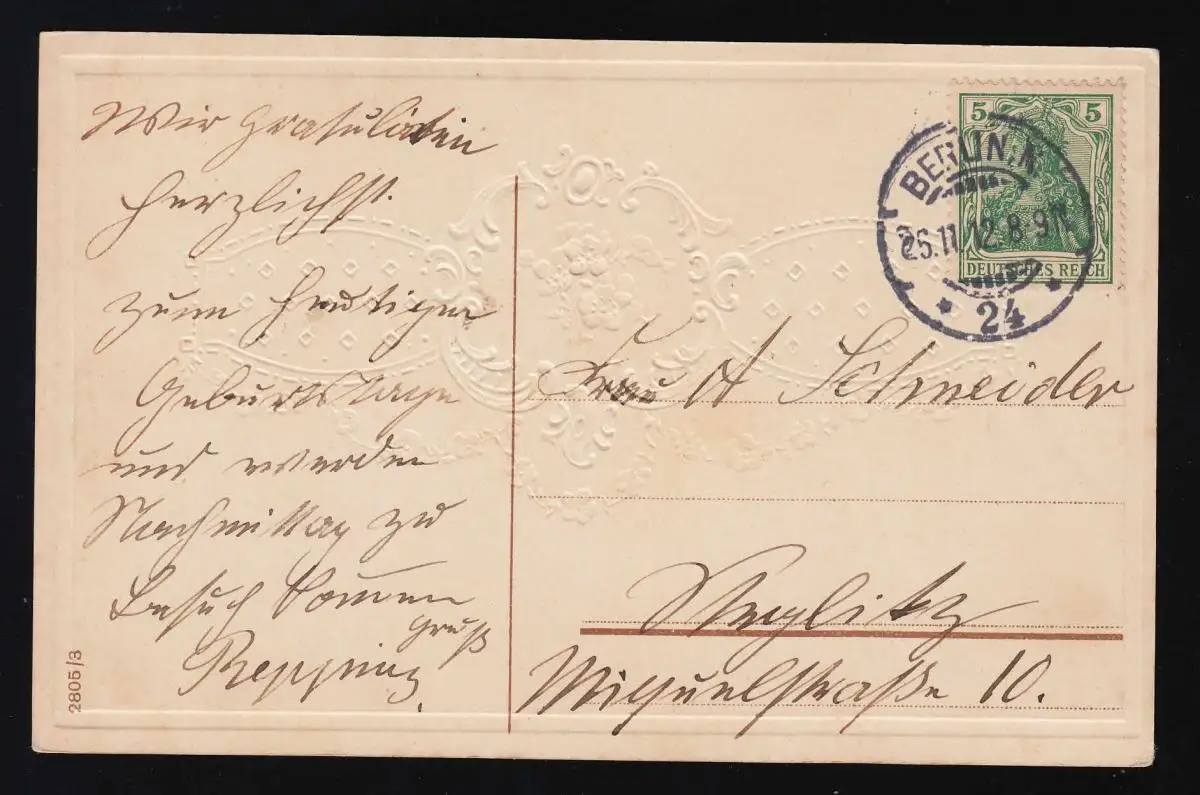 Wir gratulieren
herzlichst.
zum heutigen
Geburtstage
und werden
Nachmittag zu
Besuch kommen
Gruß
5 5
DEUTSCHES REICH
BERLIN, N.
26.11.12.8-9N
* 24 *
Frau A Schneider
Steglitz
Miquelstraße 10.
2805/3